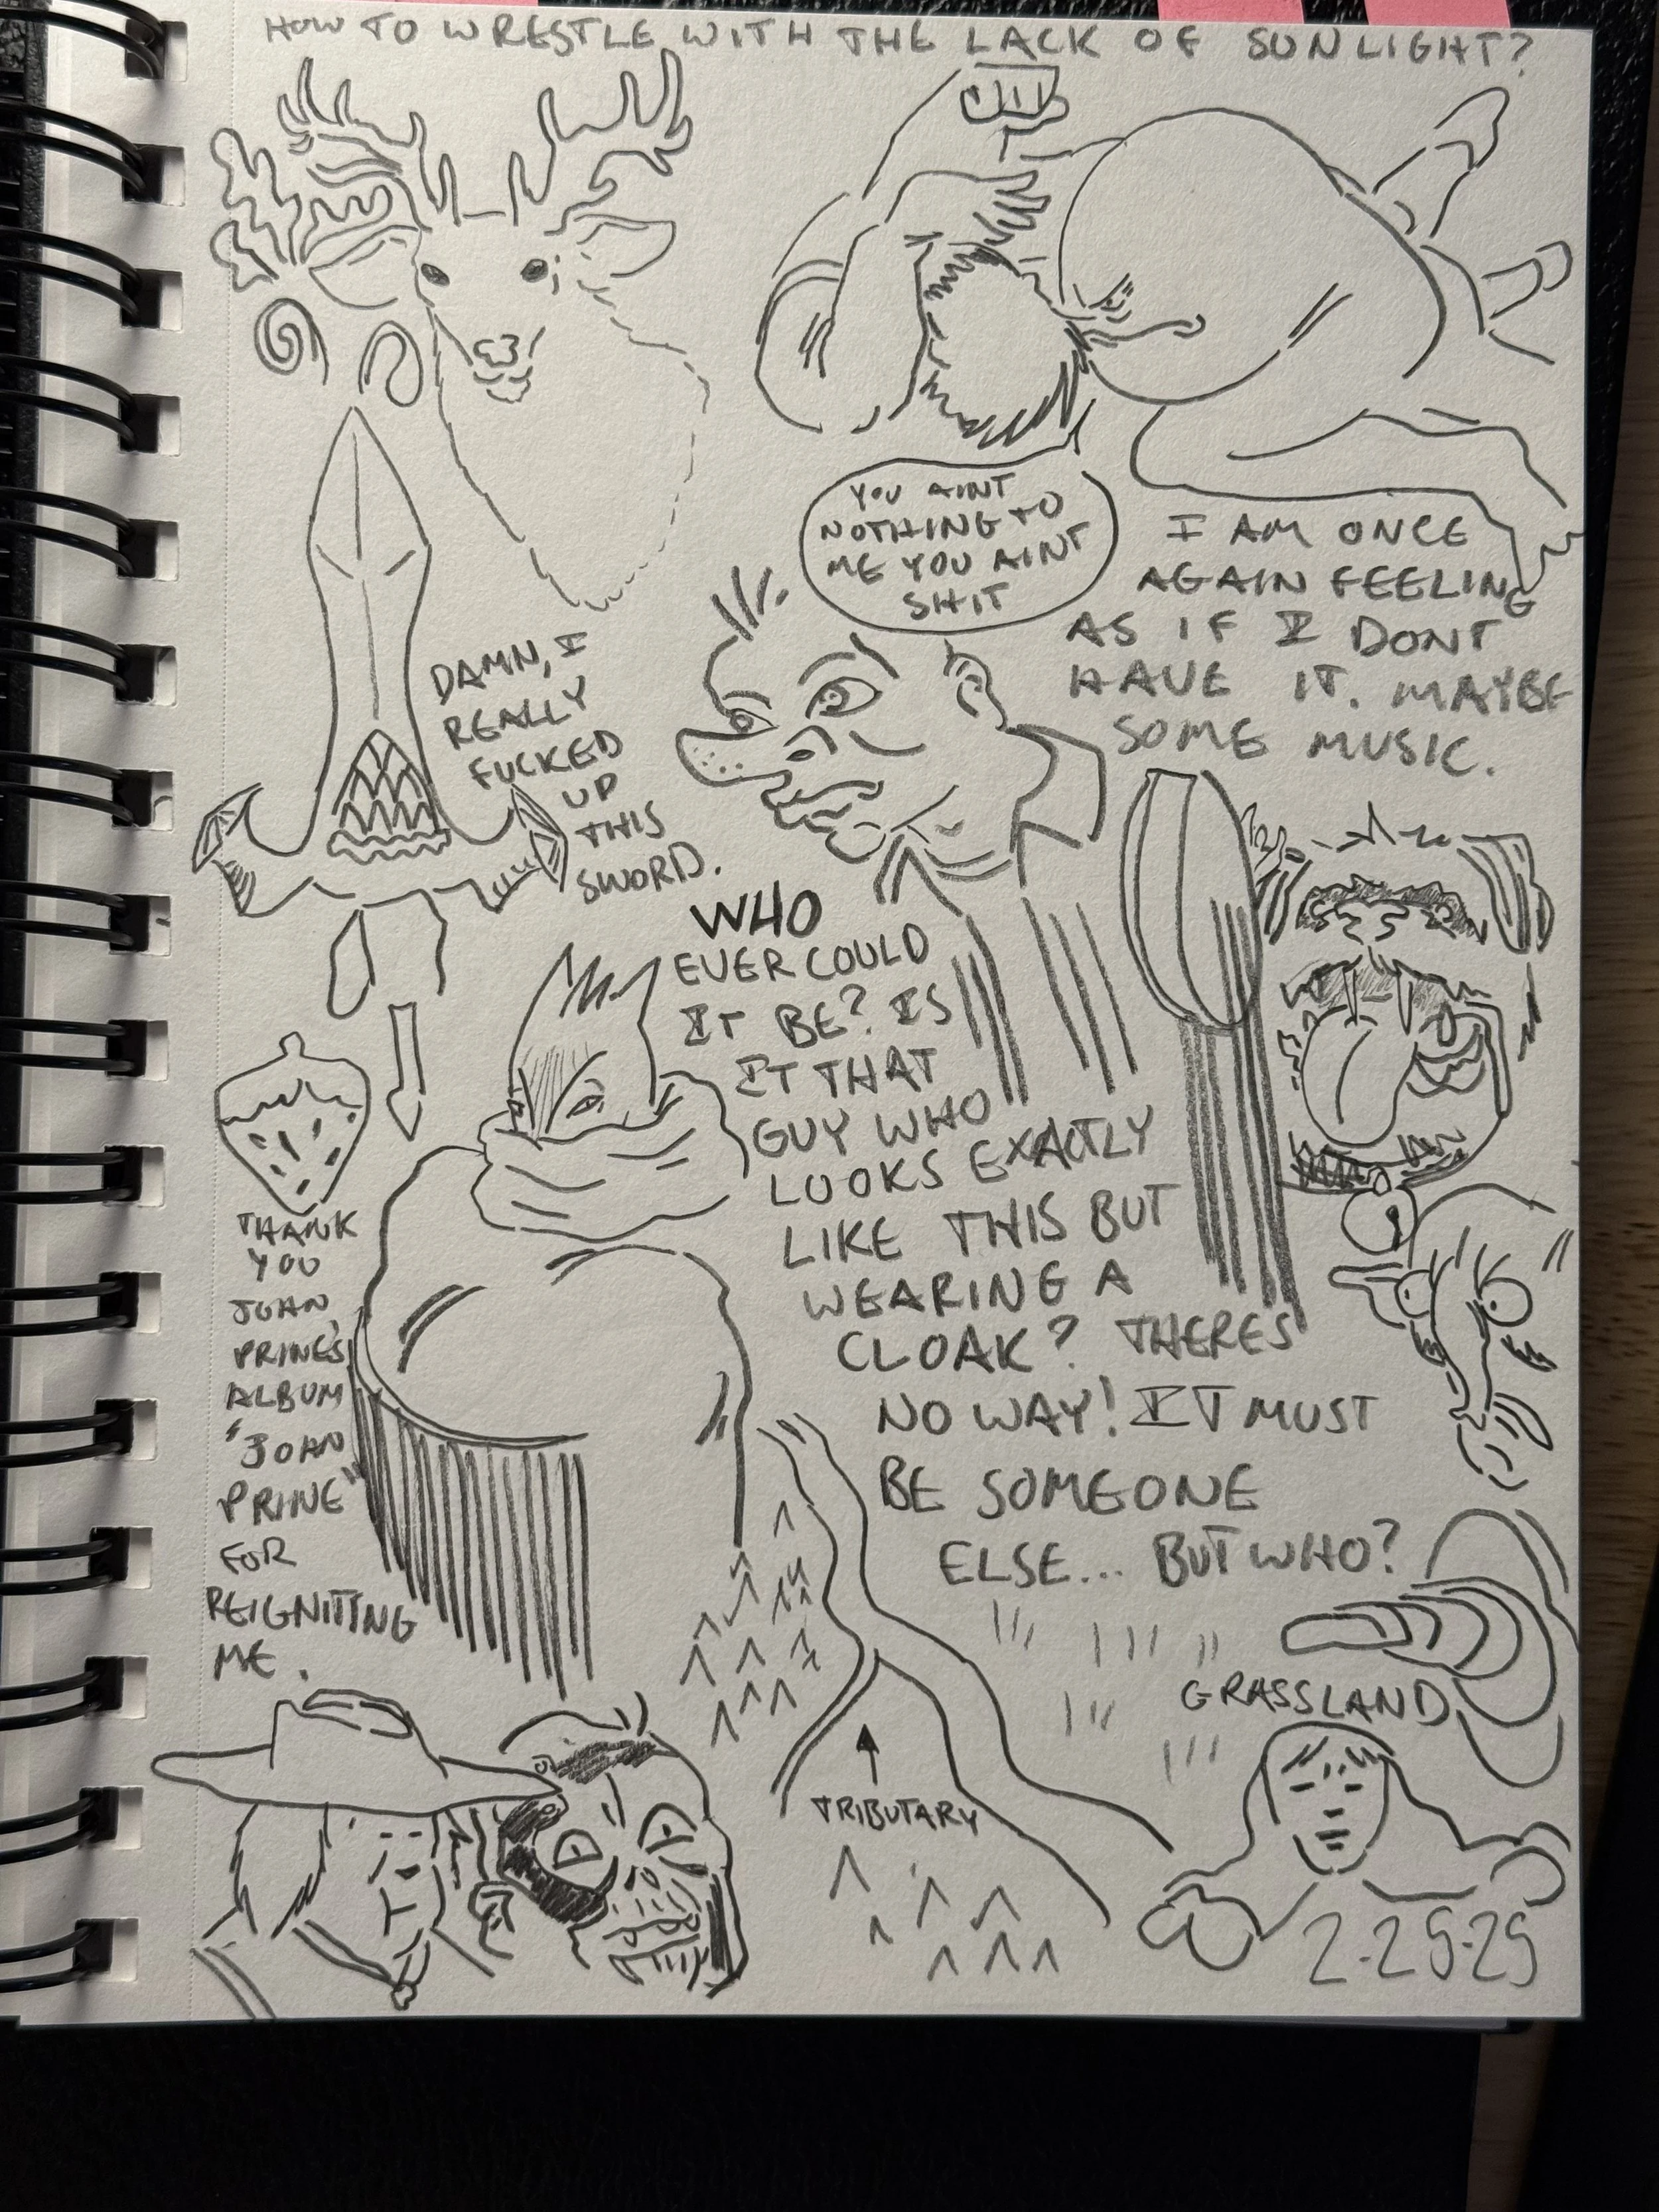 HOW TO WRESTLE WITH THE LACK OF SUNLIGHT?
YOU AINT
NOTHING TO
ME YOU AINT
SHIT
I AM ONCE
AGAIN FEELING
AS IF I DONT
HAVE IT. MAYBE
SOME MUSIC.
DAMN, I
REALLY
FUCKED
UP
THIS
SWORD.
WHO
EVER COULD
IT BE? IS
IT THAT
GUY WHO
LOOKS EXACTLY
LIKE THIS BUT
WEARING A
CLOAK? THERES
NO WAY! IT MUST
BE SOMEONE
ELSE... BUT WHO?
THANK
YOU
JOHN
PRINE'S
ALBUM
"JOHN
PRINE"
FOR
REIGNITING
ME.
GRASSLAND
TRIBUTARY
2-25-25